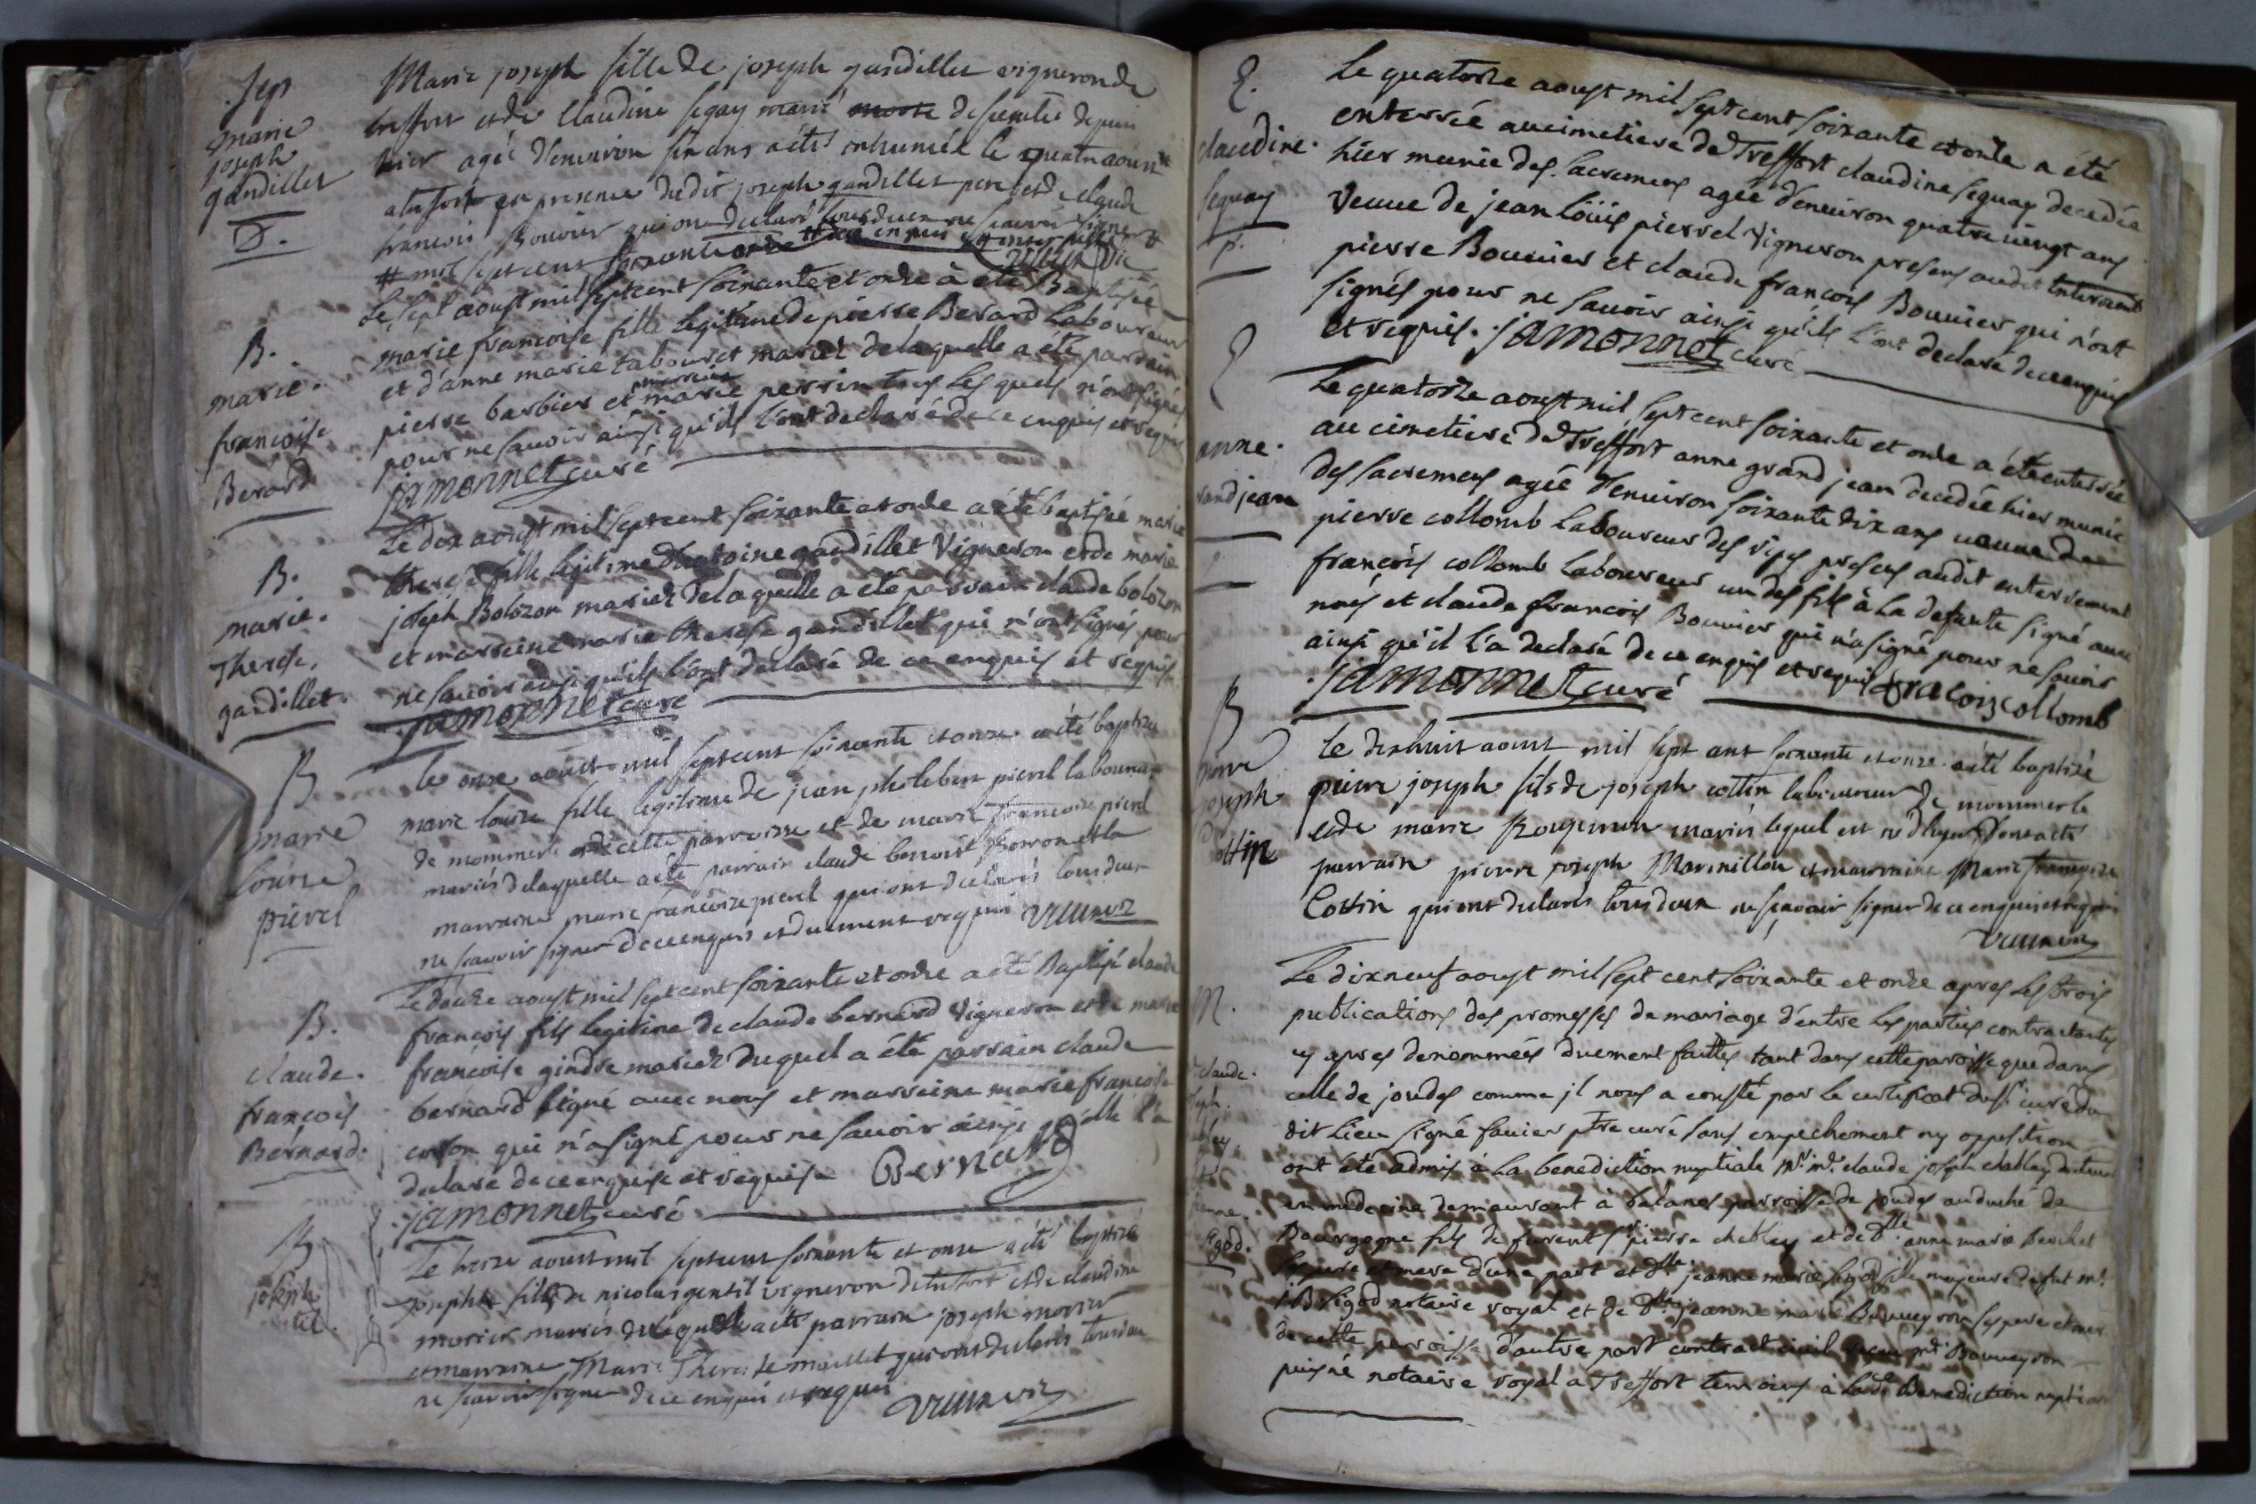 Sep
marie
joseph
gandillet
Marie joseph fille de joseph gandillet vigneron de
treffort et de Claudine segay marié decedée depuis
hier agée d'environ six ans a été inhumée le quatre aoust
a treffort en presence dudit joseph gandillet pere et de claude
francois Bouvier qui ont declaré tous deux ne scavoir signer
# mil sept cent soixante onze
B.
marie.
francoise
Berard
Le sept aoust mil sept cent soixante et onze à été Baptisée
marie francoise fille legitime de pierre Berard Laboureur
et d'anne marie tabouret mariez de laquelle a été parrain
pierre barbier et marraine marie perrin tous lesquels n'ont signés
pour ne savoir ainsi qu'ils l'ont declaré de ce enquis et requis
jamonnet curé
B.
marie.
Therese,
gandillet.
Le dix aoust mil sept cent soixante et onze a été baptisée marie
therese fille legitime d'antoine gandillet Vigneron et de marie
joseph Bolozon mariez de laquelle a été parrain claude bolozon
et marraine marie therese gandillet qui n'ont signés pour
ne savoir ainsi qu'ils l'ont declaré de ce enquis et requis.
jamonnet curé
B
marie
Louise
pievel
le onze aoust mil sept cent soixante et onze a été baptisée
marie louise fille legitime de jean philebert pievel laboureur
de mommerle de cette parroisse et de marie francoise pievel
mariés de laquelle a été parrain claude benoist et la
marraine marie francoise pievel qui ont declaré tous deux
ne scavoir signer de ce enquis et duement requis
B.
claude.
françois
Bernard.
Le douze aoust mil sept cent soixante et onze a été Baptisé claude
françois fils legitime de claude bernard Vigneron et de marie
françoise gindre mariez duquel a été parrain claude
bernard signé avec nous et marraine marie francoise
qui n'a signé pour ne savoir ainsi qu'elle l'a
declaré de ce enquise et requise Bernard
jamonnet curé
B
joseph
Le treize aoust mil sept cent soixante et onze a été baptisé
joseph fils de nicolas gentil vigneron de treffort et de claudine
morier mariés duquel a été parrain joseph morier
et marraine Marie Therese maillet qui ont declaré tous deux
ne scavoir signer de ce enquis et requis
E.
claudine.
seguay
Le quatorze aoust mil sept cent soixante et onze a été
enterrée au cimetiere de Treffort claudine seguay decedée
hier munie des sacremens agée d'environ quatre vingt ans
veuve de jean Loüis pievel Vigneron presens audit enterrement
pierre Bouvier et claude françois Bouvier qui n'ont
signés pour ne savoir ainsi qu'ils l'ont declaré de ce enquis
et requis. jamonnet curé
E
anne.
grandjean
Le quatorze aoust mil sept cent soixante et onze a été enterrée
au cimetiere de Treffort anne grand jean decedée hier munie
des sacremens agée d'environ soixante dix ans veuve de
pierre collomb Laboureur presens audit enterrement
françois collomb Laboureur un des fils à la defunte signé avec
nous et claude françois Bouvier qui n'a signé pour ne savoir
ainsi qu'il l'a declaré de ce enquis et requis fracois collomb
jamonnet curé
B
pierre
joseph
Cottin
Le dix huit aoust mil sept cent soixante et onze a été baptisé
pierre joseph fils de joseph cottin laboureur de mommerle
et de marie mariés lequel est né d'hyer dont a été
parrain pierre joseph Marmillou et marraine Marie françoise
Cottin qui ont declarés tous deux ne sçavoir signer de ce enquis et requis
M.
claude.
Le dix neuf aoust mil sept cent soixante et onze apres les trois
publications des promesses de mariage d'entre les parties contractantes
cy apres denommées duement faittes tant dans cette paroisse que dans
celle de joudes comme jl nous a consté par le certificat du sr curé du
dit Lieu signé favier ptre curé sans empechement ny opposition
ont été admis à la benediction nuptiale claude joseph chablay docteur
en medecine demeurant à balanod parroisse de joudes au duché de
Bourgogne fils de furent sr pierre chablay et de dlle anne marie
ses pere et mere d'une part et dlle jeanne marie figod fille mineure de fut mr
figod notaire royal et de dlle jeanne marie Bouveyron ses pere et mere
de cette parroisse d'autre part contract civil reçu mr Bouveyron
puisné notaire royal a Treffort temoins à lad. benediction nuptiale